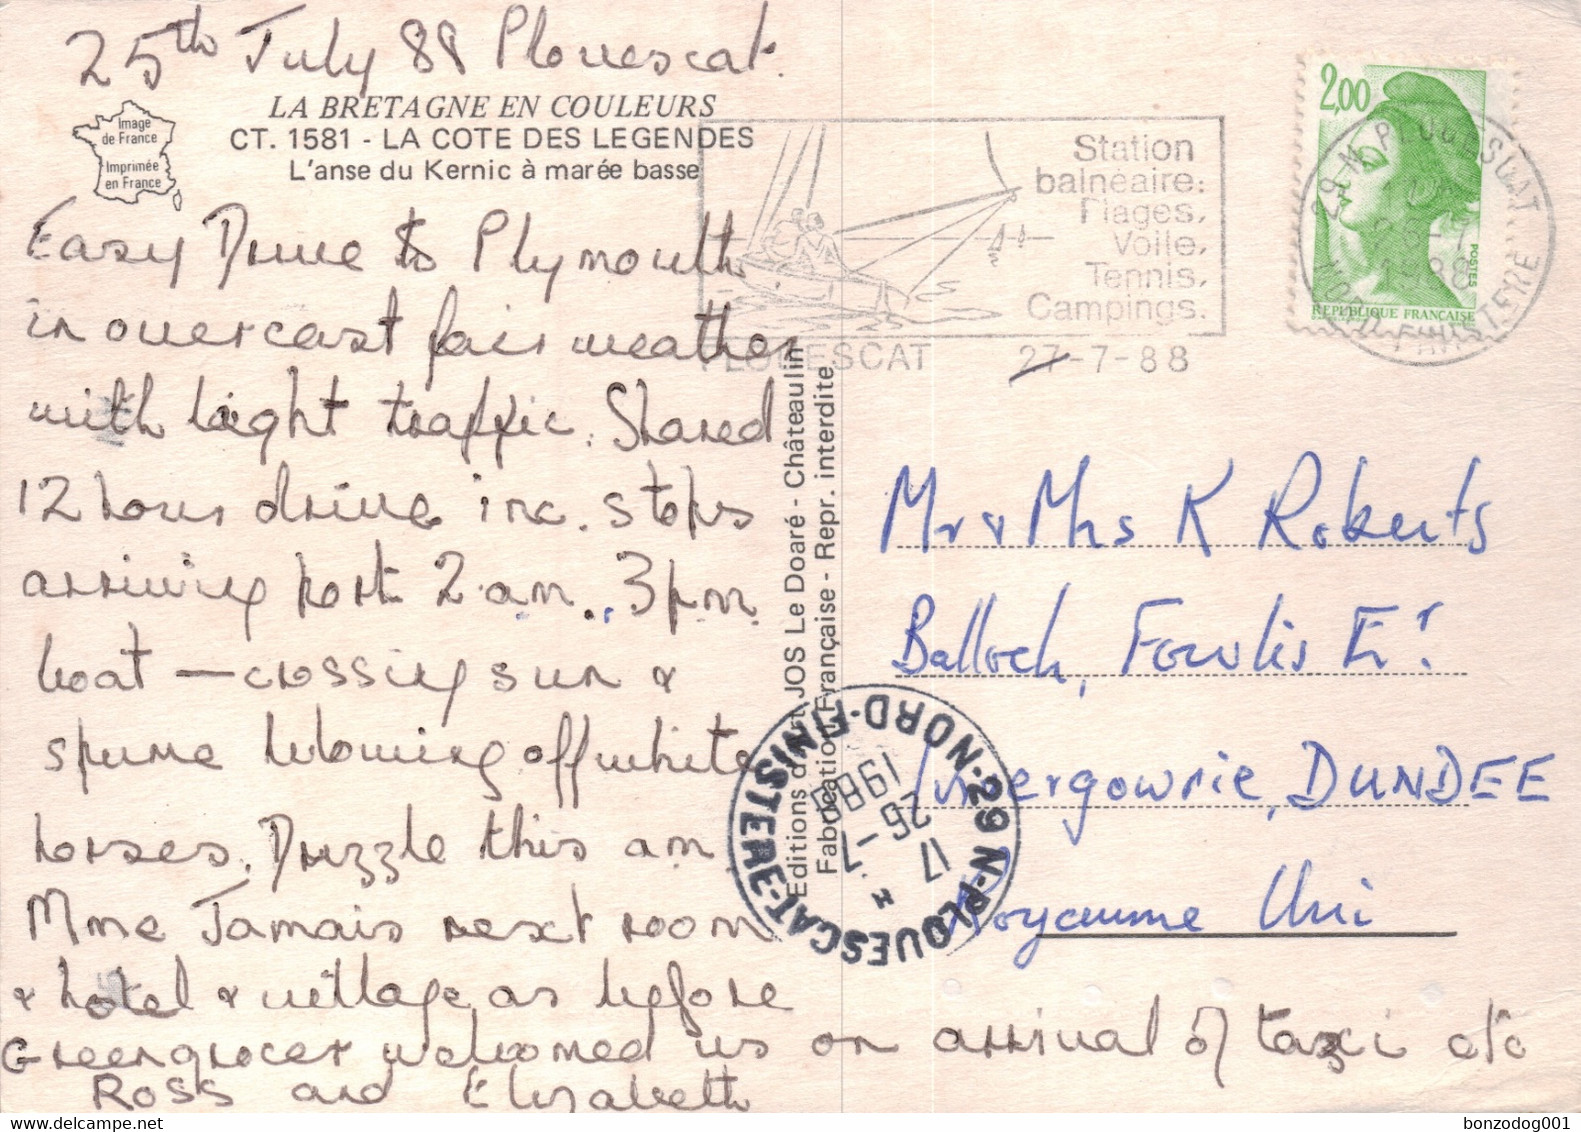 25th July 88 Plouescat.
Image
de France
Imprimée
en France
LA BRETAGNE EN COULEURS
CT. 1581 - LA COTE DES LEGENDES
L'anse du Kernic à marée basse
Easy Drive to Plymouth
in overcast fair weather
with light traffic. Shared
12 hour drive inc. stops
arriving port 2 am. 3pm
boat — crossing sun &
spume blowing off white
horses. Drizzle this am
Mme Jamais next room
& hotel & village as before
Greengrocer welcomed us on arrival of taxi etc
Ross and Elizabeth
Editions d'art JOS Le Doaré - Châteaulin
Fabrication Française - Repr. interdite
Station
balnéaire:
Plages,
Voile,
Tennis,
Campings.
PLOUESCAT 27-7-88
2,00
POSTES
REPUBLIQUE FRANÇAISE
29 N. PLOUESCAT
26-7
1988
NORD FINISTERE
Mr & Mrs K Roberts
Balloch, Fowlis Er.
Invergowrie, DUNDEE
Royaume Uni
29 N-PLOUESCAT-NORD-FINISTERE
17
26-7
1988
bonzodog001